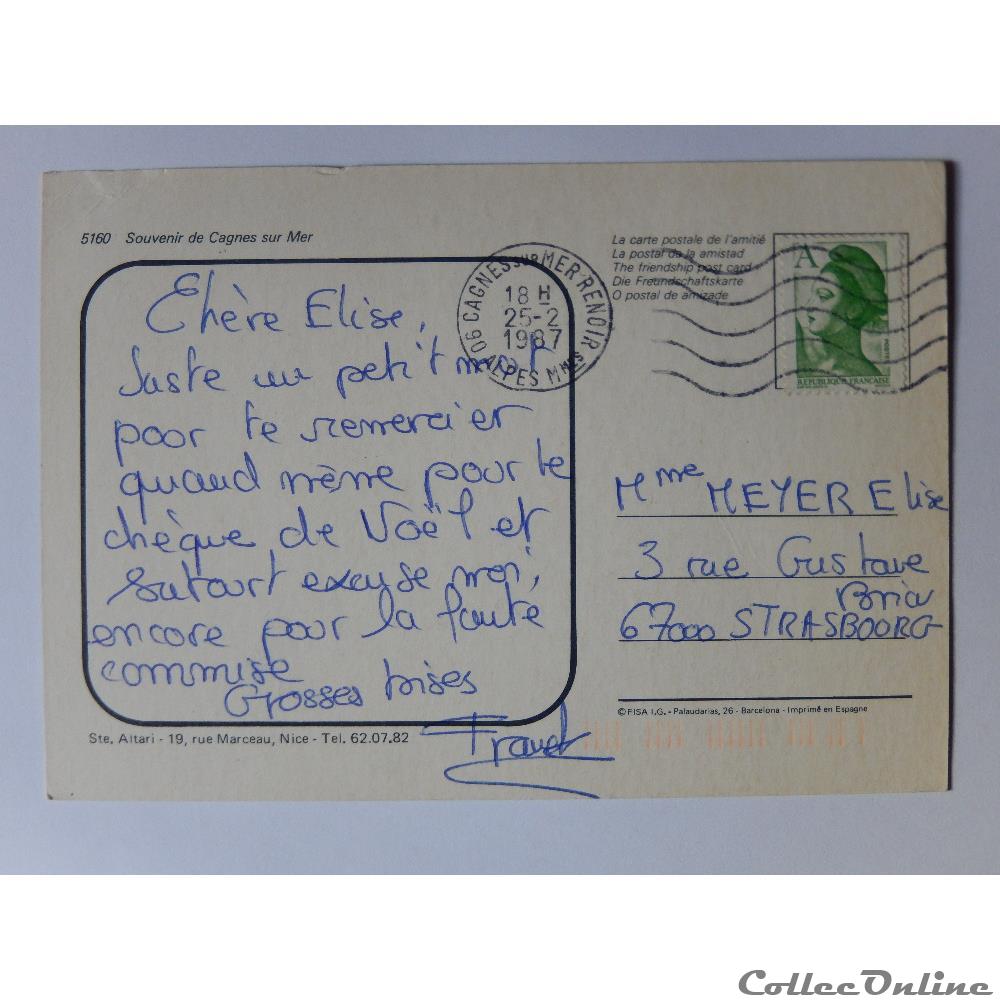 5160 Souvenir de Cagnes sur Mer
La carte postale de l'amitié
La postal de la amistad
The friendship post card
Die Freundschaftskarte
O postal de amizade
06 CAGNES SUR MER-RENOIR
18 H
25-2
1987
ALPES Mmes
A
REPUBLIQUE FRANCAISE
Chère Elise,
Juste un petit mot
pour te remercier
quand même pour le
chèque de Noël et
surtout excuse moi,
encore pour la faute
commise
Grosses bises
Franck
Mme MEYER Elise
3 rue Gustave
67000 STRASBOURG
© FISA I.G. - Palaudarias, 26 - Barcelona - Imprimé en Espagne
Ste. Altari - 19, rue Marceau, Nice - Tel. 62.07.82
CollecOnline